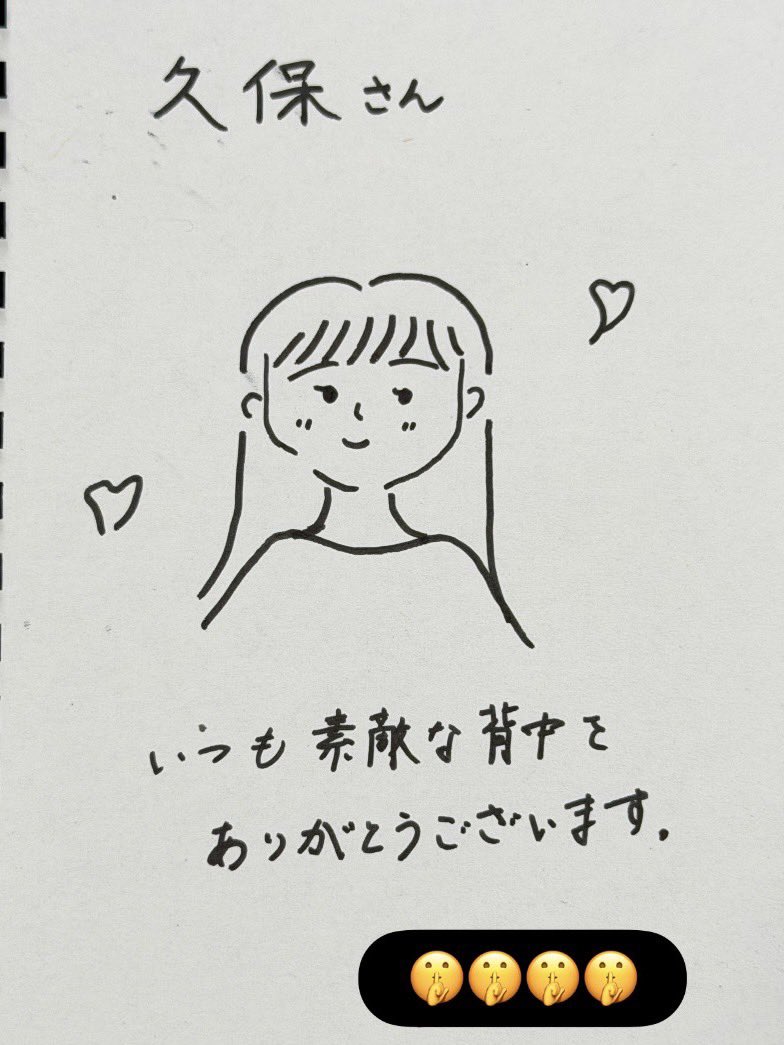 久保さん
いつも素敵な背中を
ありがとうございます。